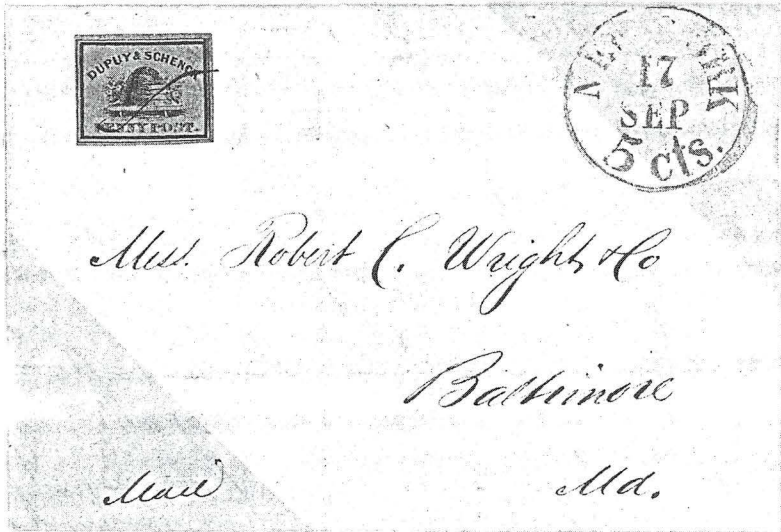 DUPUY & SCHENCK
PENNY POST.
NEW YORK
17
SEP
5 cts.
Mess. Robert C. Wright & Co
Baltimore
Mail
Md.